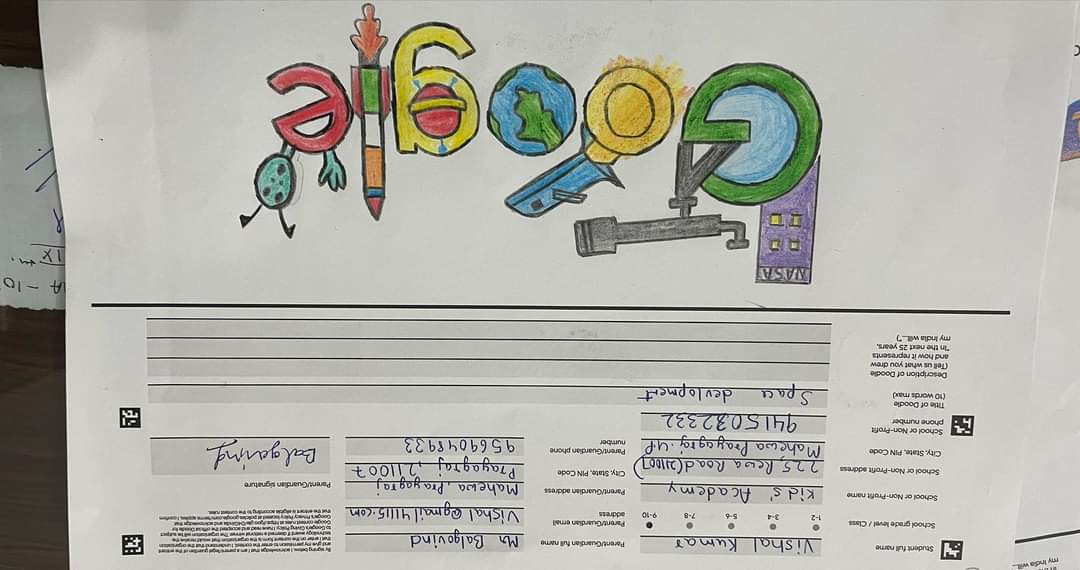 Student full name
Vishal Kumar
School grade level / Class
1-2 3-4 5-6 7-8 9-10
School or Non-Profit name
Kid's Academy
School or Non-Profit address
225, Rewa Road (211007)
City, State, PIN Code
Mahewa Prayagraj U.P
School or Non-Profit
phone number
9415032332
Parent/Guardian full name
Mr Balgovind
Parent/Guardian email
address
Vishal@gmail41115.com
Parent/Guardian address
Mahewa, Prayagraj
City, State, PIN Code
Prayagraj, 211007
Parent/Guardian phone
number
9569048933
By signing below, I acknowledge that I am a parent/legal guardian of the entrant
and give my permission to enter the contest, I understand that the organization
that I enter on the contest form is the organization that would receive the
technology award if deemed a national winner. The organization will be subject
to Google's Giving Policy. I have read and accepted the official Doodle for
that the entrant is eligible according to the contest rules.
Parent/Guardian signature
Balgovind
Title of Doodle
(10 words max)
Space devlopment
Description of Doodle
(Tell us what you drew
and how it represents
"In the next 25 years,
my India will..."?)
Google
NASA
my India will...